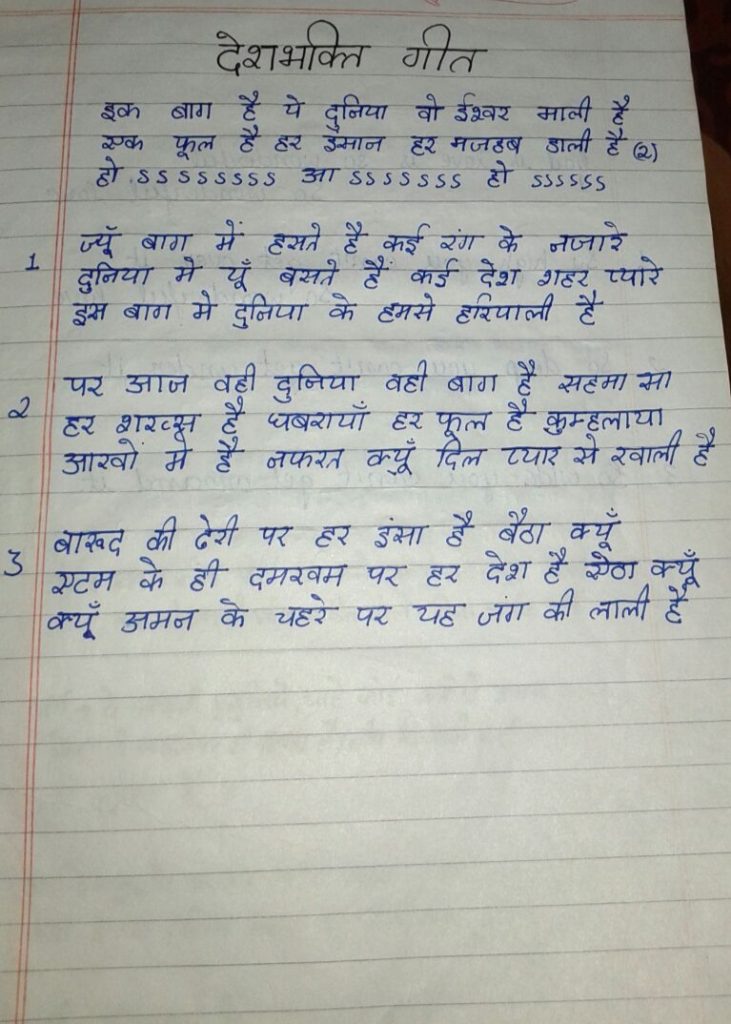 देशभक्ति गीत
इक बाग है ये दुनिया वो ईश्वर माली है
एक फूल है हर इंसान हर मजहब डाली है (2)
हो ऽऽऽऽऽऽऽऽ आ ऽऽऽऽऽऽऽ हो ऽऽऽऽऽऽ
1 ज्यूँ बाग में हसते है कई रंग के नजारे
दुनिया मे यूँ बसते है कई देश शहर प्यारे
इस बाग मे दुनिया के हमसे हरियाली है
2 पर आज वही दुनिया वही बाग है सहमा सा
हर शख्स है घबरायाँ हर फूल है कुम्हलाया
आखों मे है नफरत क्यूँ दिल प्यार से खाली है
3 बारूद की ढेरी पर हर इंसा है बैठा क्यूँ
एटम के ही दमखम पर हर देश है ऐठा क्यूँ
क्यूँ अमन के चहरे पर यह जंग की लाली है